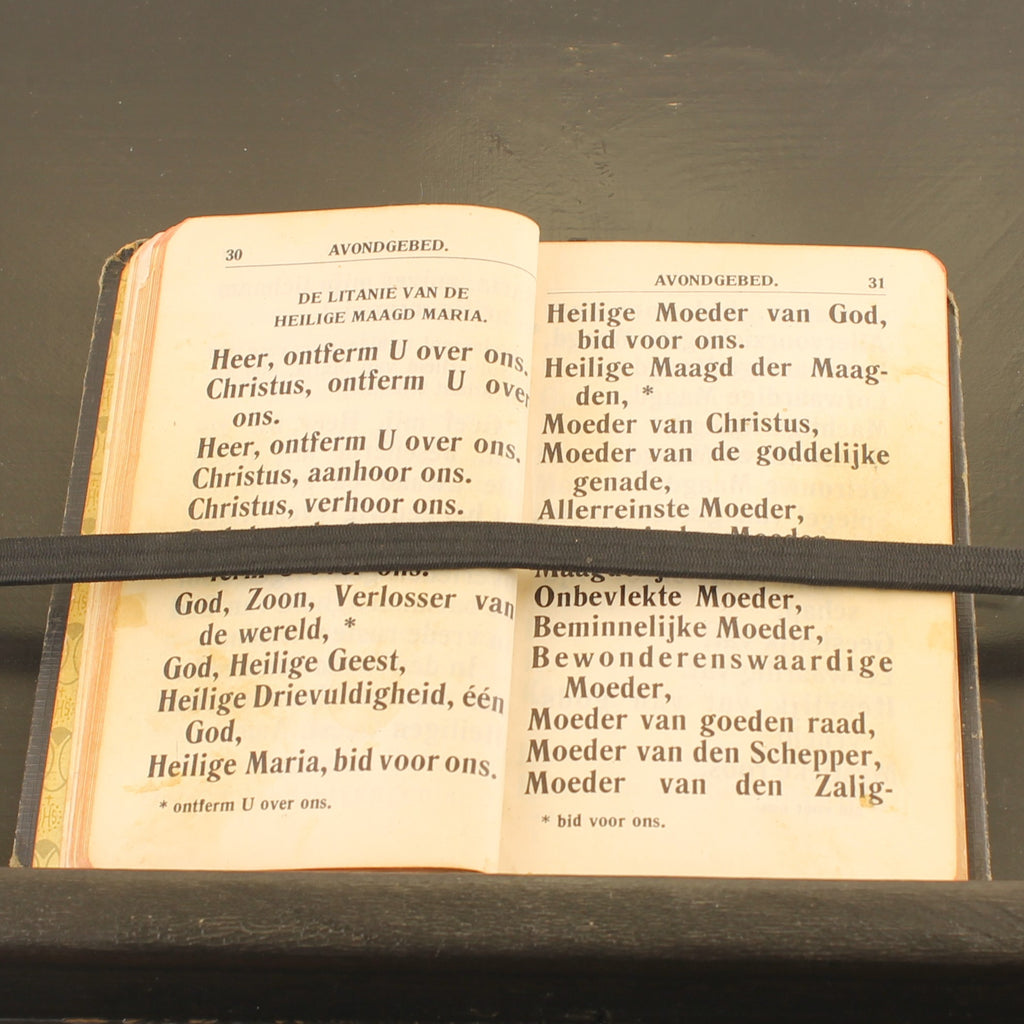 30 AVONDGEBED.
DE LITANIE VAN DE
HEILIGE MAAGD MARIA.
Heer, ontferm U over ons.
Christus, ontferm U over
ons.
Heer, ontferm U over ons.
Christus, aanhoor ons.
Christus, verhoor ons.
ferm U over ons.
God, Zoon, Verlosser van
de wereld, *
God, Heilige Geest,
Heilige Drievuldigheid, één
God,
Heilige Maria, bid voor ons.
* ontferm U over ons.
AVONDGEBED. 31
Heilige Moeder van God,
bid voor ons.
Heilige Maagd der Maag-
den, *
Moeder van Christus,
Moeder van de goddelijke
genade,
Allerreinste Moeder,
Moeder,
Onbevlekte Moeder,
Beminnelijke Moeder,
Bewonderenswaardige
Moeder,
Moeder van goeden raad,
Moeder van den Schepper,
Moeder van den Zalig-
* bid voor ons.